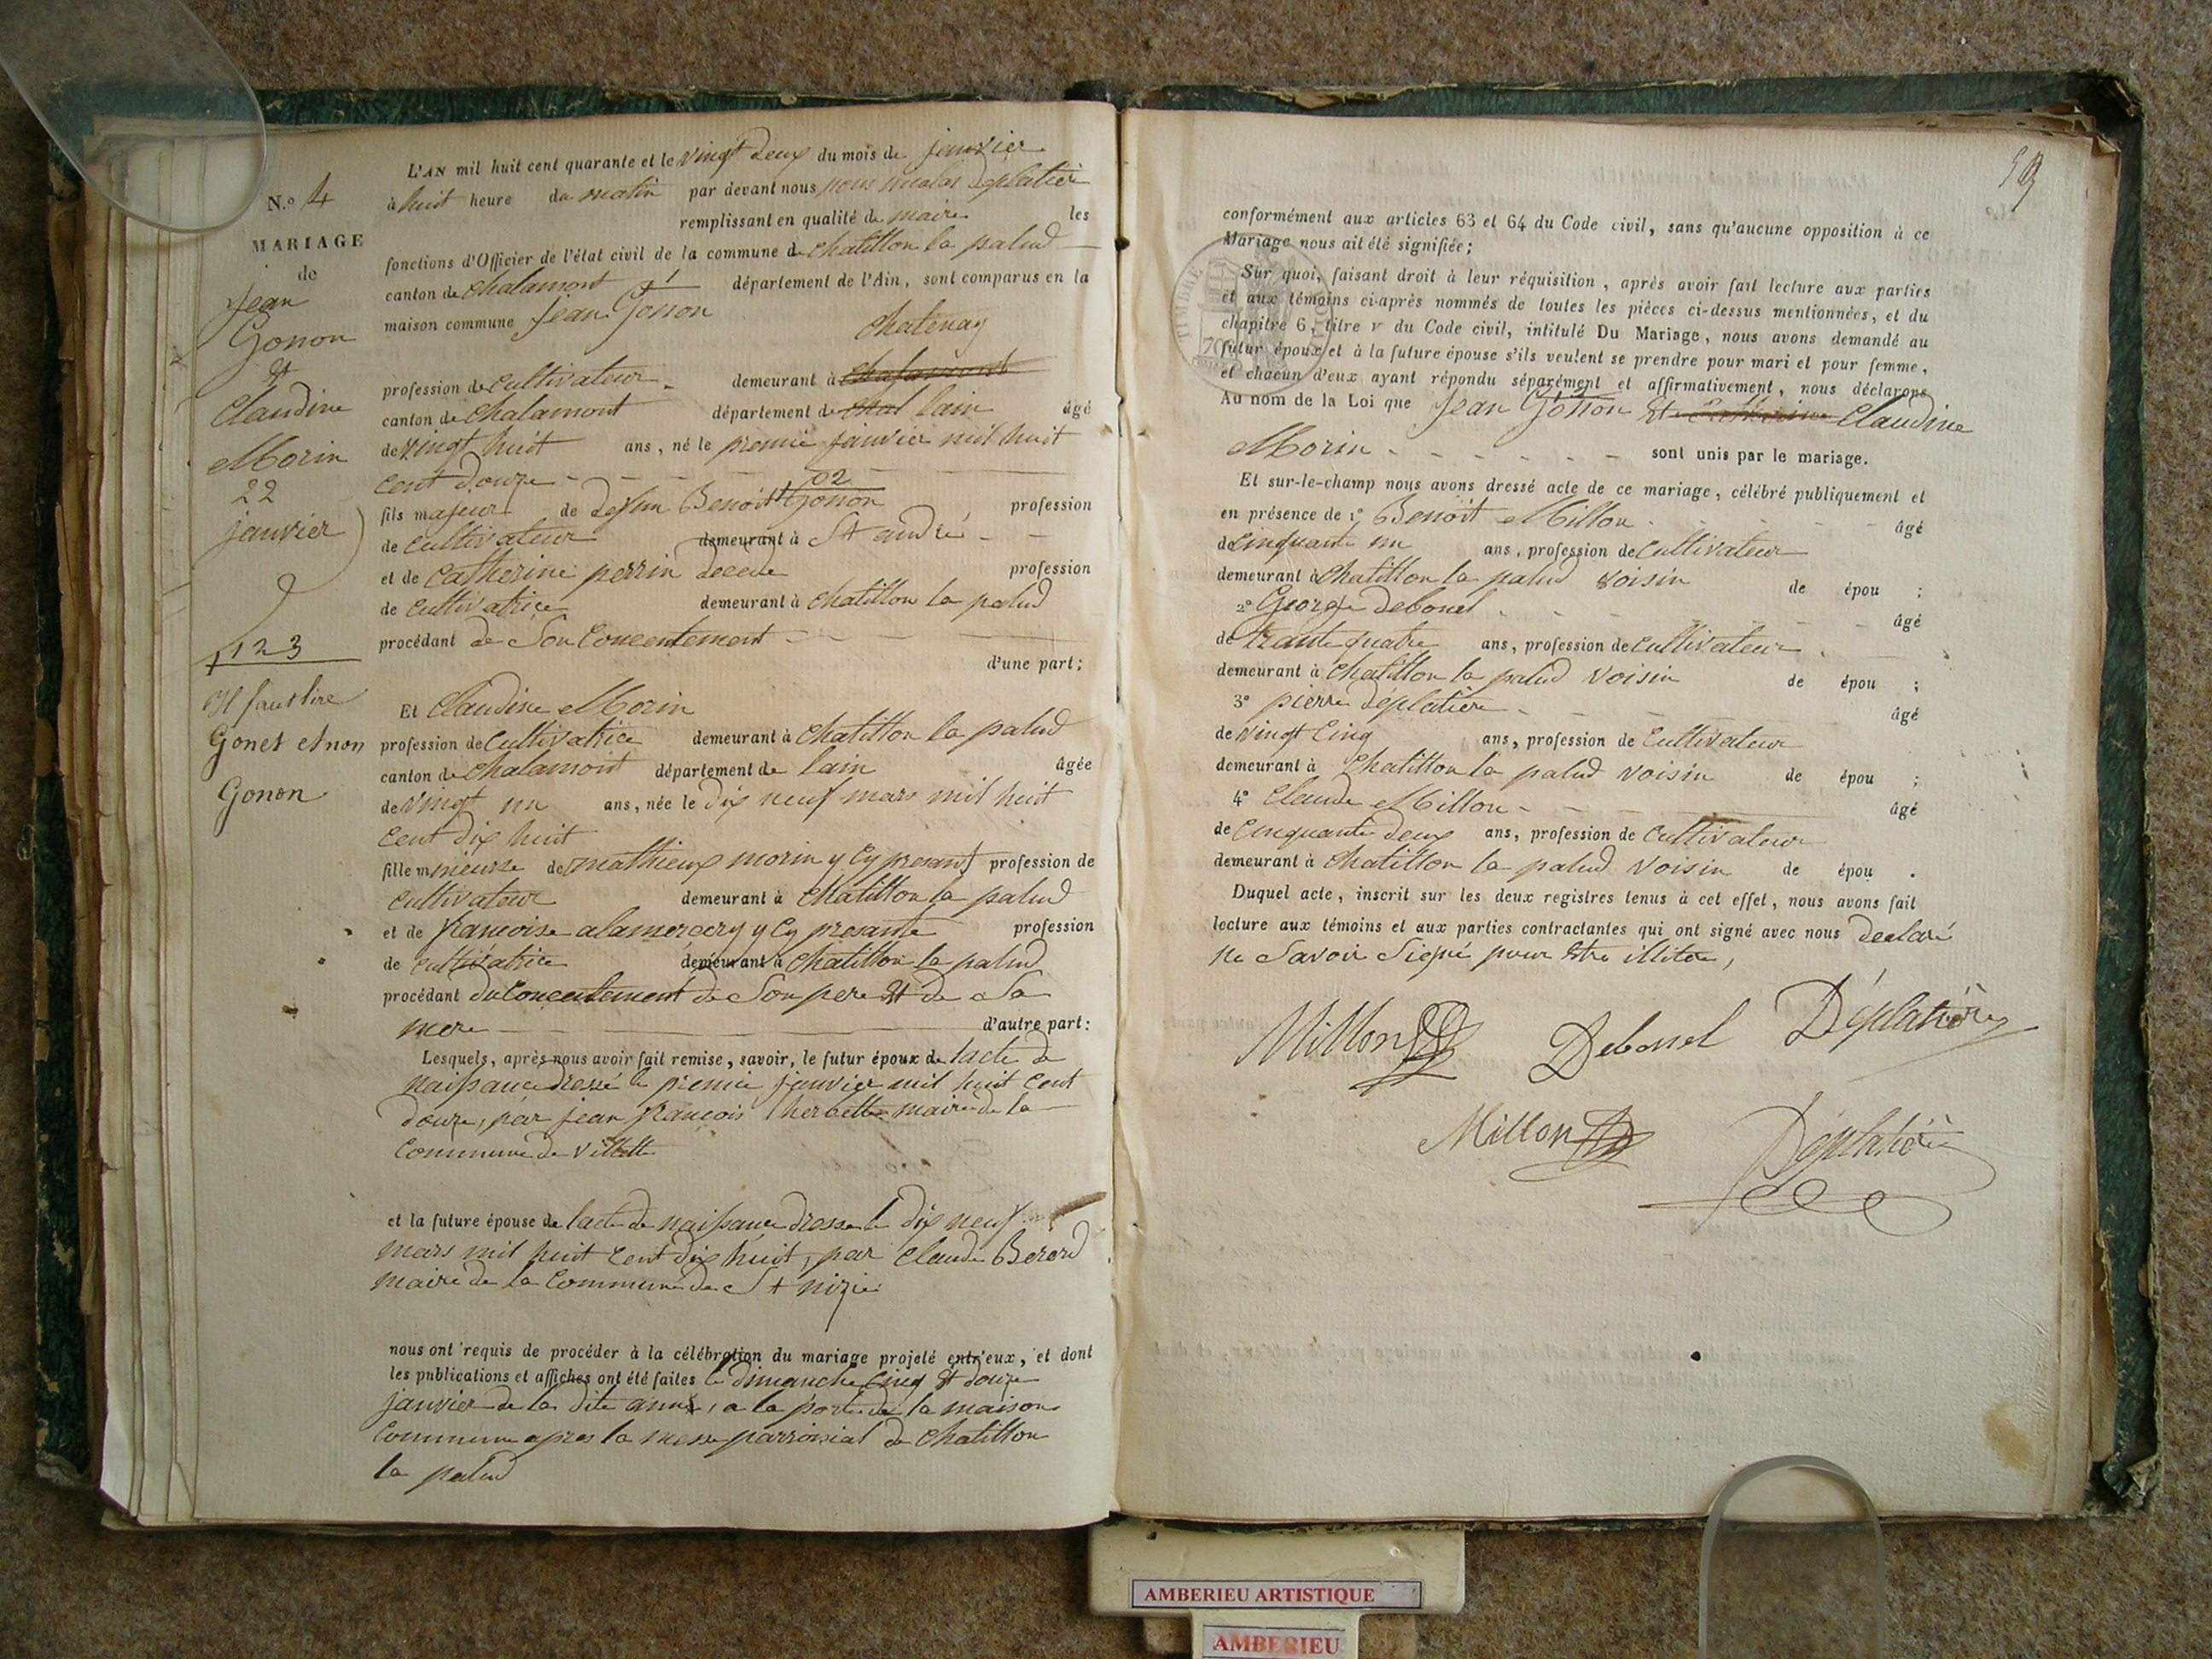 N.º 4
MARIAGE
de
Jean
Gonon
et
Claudine
Morin
22
janvier
1 2 3
Il faut lire
Gonet et non
Gonon
L'AN mil huit cent quarante et le vingt deux du mois de janvier
à huit heure du matin par devant nous nous nicolas deplatiere
remplissant en qualité de maire les
fonctions d'Officier de l'état civil de la commune de chatillon la palud
canton de chalamont département de l'Ain, sont comparus en la
maison commune Jean Gonon
chatenay
profession de cultivateur demeurant à chalamont
canton de chalamont département de chal lain âgé
de vingt huit ans, né le premie janvier mil huit
cent douze
fils majeur de defun Benoit Gonon, profession
de cultivateur demeurant à St andré
et de catherine perrin decede profession
de cultivatrice demeurant à chatillon la palud
procédant de Son Concentement
d'une part;
Et Claudine Morin
profession de cultivatrice demeurant à chatillon la palud
canton de chalamont département de lain âgée
de vingt un ans, née le dix neuf mars mil huit
cent dix huit
fille mineure de mathieux morin y cy presant profession de
cultivateur demeurant à chatillon la palud
et de francoise alamercery y cy presante profession
de cultivatrice demeurant à chatillon la palud
procédant du Concentement de Son pere et de Sa
mere d'autre part:
Lesquels, après nous avoir fait remise, savoir, le futur époux de lacte de
naissance dressé le premie janvier mil huit cent
douze, par jean francois herbette maire de la
Commune de villette
et la future épouse de lacte de naissance dresse le dix neuf
mars mil huit cent dix huit, par Claude Berard
maire de la Commune de St nizie
nous ont requis de procéder à la célébration du mariage projeté entr'eux, et dont
les publications et affiches ont été faites le dimanche cinq et douze
janvier de la dite anné, a la porte de la maison
Commune apres la messe parroisial de Chatillon
la palud
conformément aux articles 63 et 64 du Code civil, sans qu'aucune opposition à ce
Mariage nous ait été signifiée;
Sur quoi, faisant droit à leur réquisition, après avoir fait lecture aux parties
et aux témoins ci-après nommés de toutes les pièces ci-dessus mentionnées, et du
chapitre 6, titre v du Code civil, intitulé Du Mariage, nous avons demandé au
futur époux et à la future épouse s'ils veulent se prendre pour mari et pour femme,
et chacun d'eux ayant répondu séparément et affirmativement, nous déclarons
Au nom de la Loi que Jean Gonon Et Catherine Claudine
Morin sont unis par le mariage.
Et sur-le-champ nous avons dressé acte de ce mariage, célébré publiquement et
en présence de 1º Benoit Millon âgé
de cinquante un ans, profession de cultivateur
demeurant à chatillon la palud voisin de épou ;
2º George debonel âgé
de trante quatre ans, profession de cultivateur
demeurant à chatillon la palud voisin de épou ;
3º pierre déplatiére âgé
de vingt cinq ans, profession de cultivateur
demeurant à chatillon la palud voisin de épou ;
4º Claude Millon âgé
de cinquante deux ans, profession de cultivateur
demeurant à chatillon la palud voisin de épou .
Duquel acte, inscrit sur les deux registres tenus à cet effet, nous avons fait
lecture aux témoins et aux parties contractantes qui ont signé avec nous declaré
ne Savoir Signé pour Etre illitere,
Millon Debonel Déplatière
Millon Déplatière
TIMBRE
70
AMBERIEU ARTISTIQUE
AMBERIEU